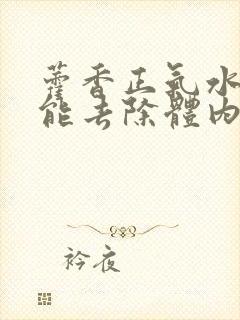 藿香正氣水
能去除體內
衿夜